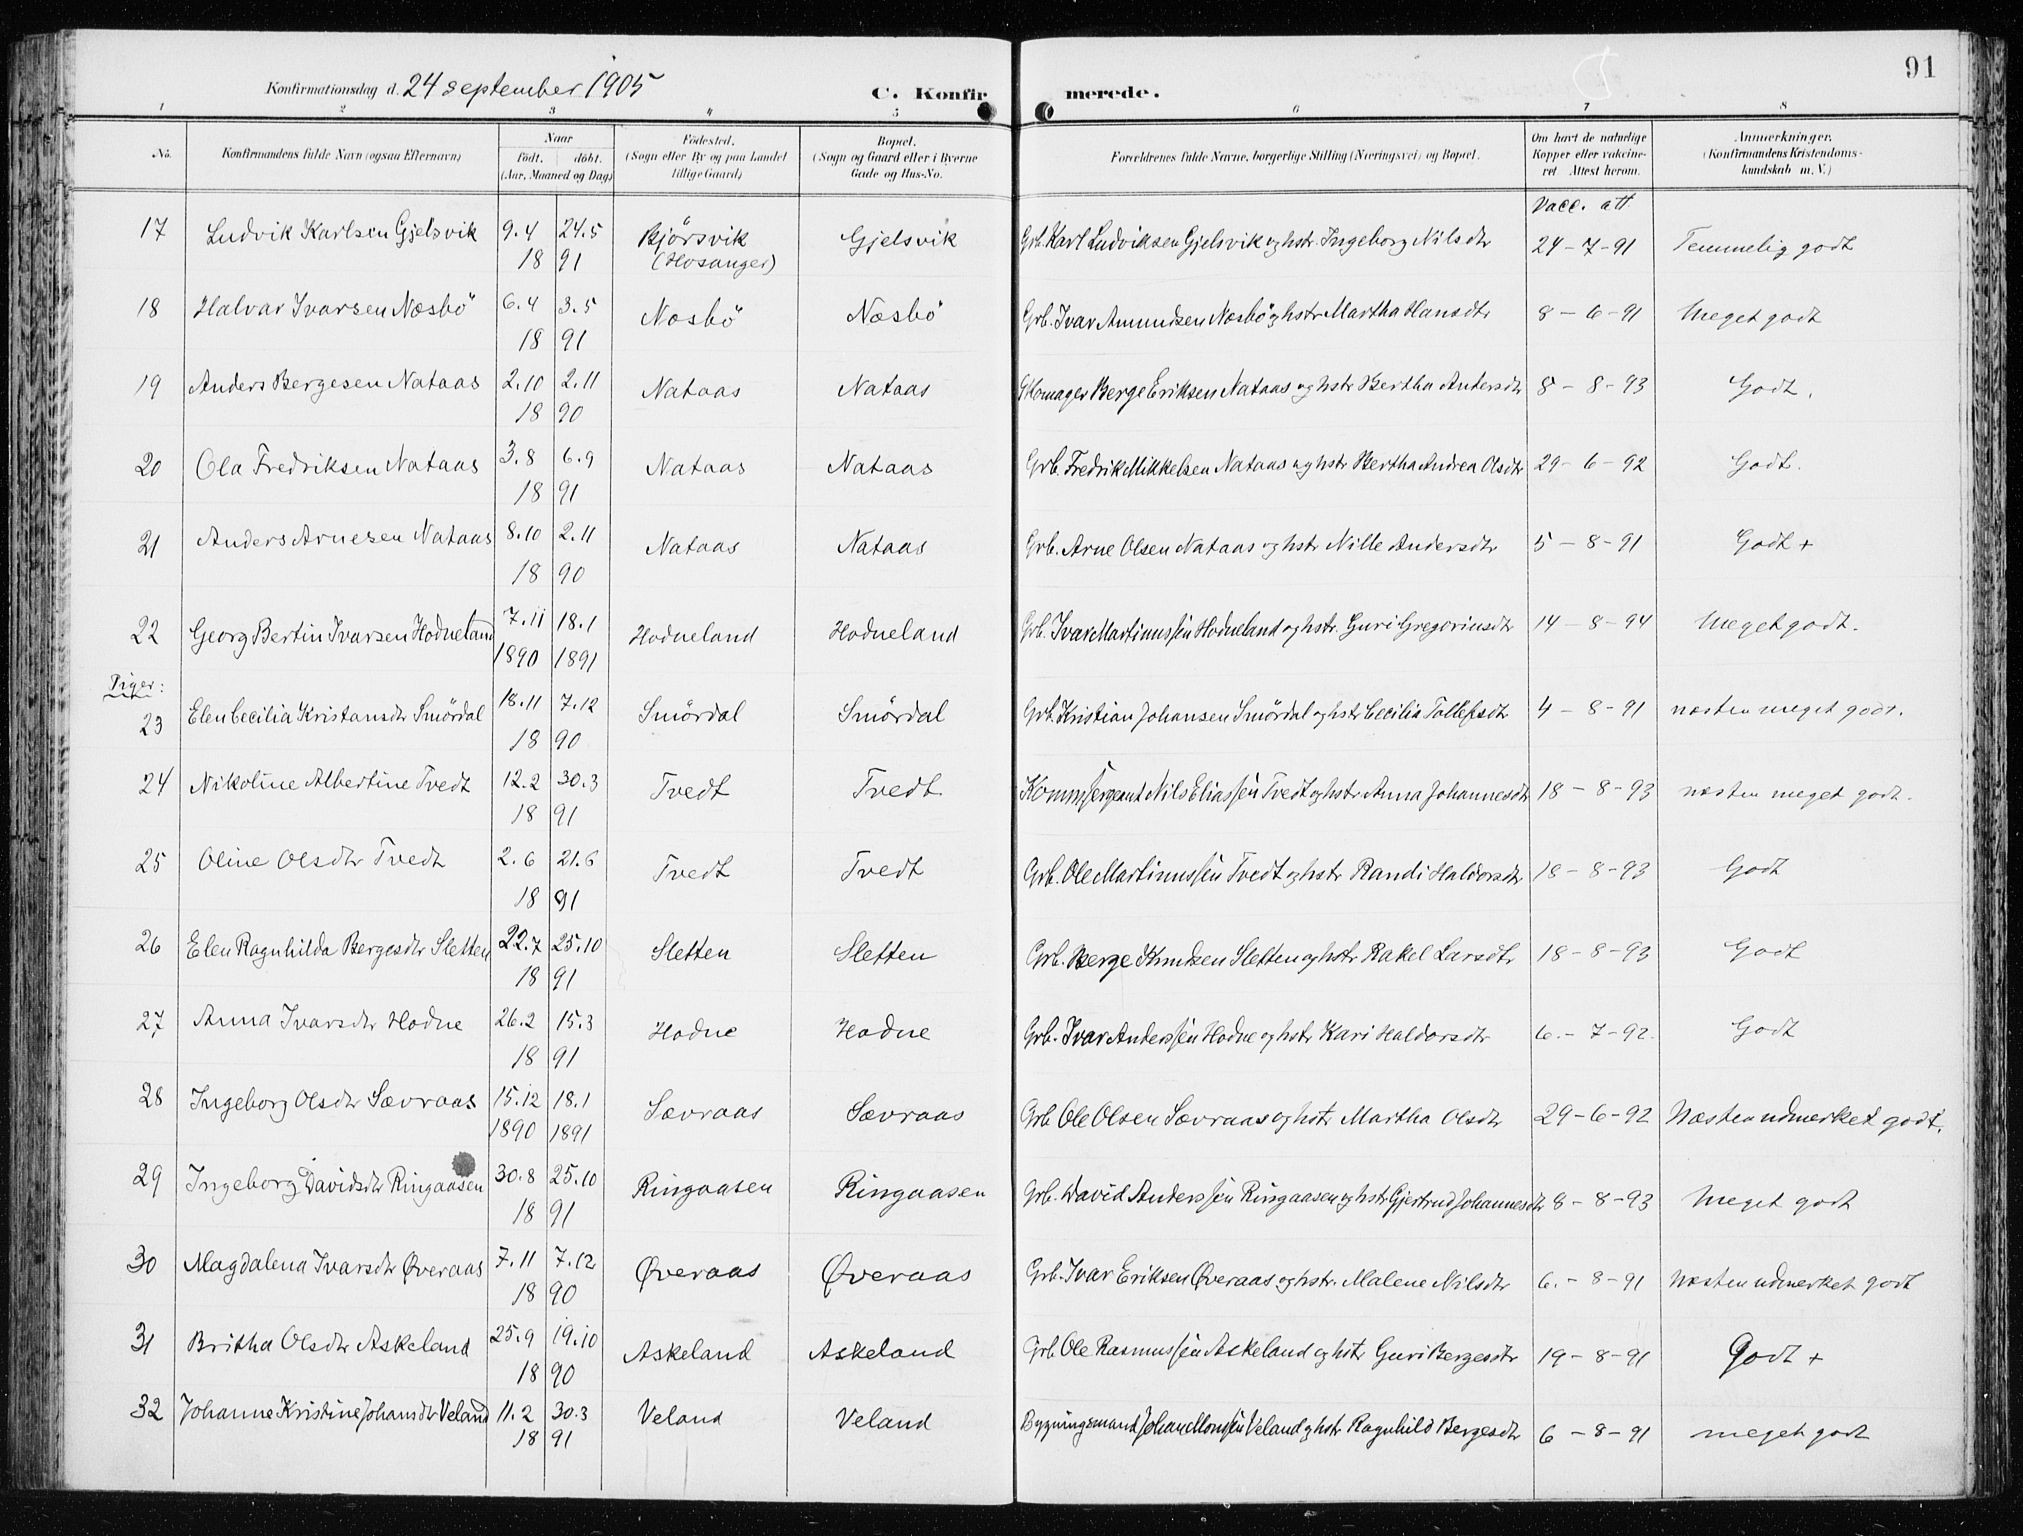 91
Konfirmationsdag d. 24 september 1905
C. Konfir merede.
1 2 3 4 5 6 7 8
No. Konfirmandens fulde Navn (ogsaa Efternavn) Naar födt. döbt. (Aar, Maaned og Dag) Födested. (Sogn eller By og paa Landet tillige Gaard) Bopæl. (Sogn og Gaard eller i Byerne Gade og Hus-No. Forældrenes fulde Navne, borgerlige Stilling (Næringsvei) og Bopæl. Om havt de naturlige Kopper eller vakcineret Attest herom. Anmærkninger. (Konfirmandens Kristendomskundskab m. V.)
Vacc. att
17 Ludvik Karlsen Gjelsvik 9.4 24.5 Björsvik Gjelsvik Grb. Karl Ludviksen Gjelsvik og hstr. Ingeborg Nilsdtr 24-7-91 Temmelig godt
18 91 (Hosanger)
18 Halvar Ivarsen Næsbö 6.4 3.5 Næsbö Næsbö Grb. Ivar Amundsen Næsbö og hstr Martha Hansdtr 8-6-91 Meget godt
18 91
19 Anders Bergesen Nataas 2.10 2.11 Nataas Nataas Skomager Berge Eriksen Nataas og hstr Bertha Andersdtr 8-8-93 Godt.
18 90
20 Ola Fredriksen Nataas 3.8 6.9 Nataas Nataas Grb. Fredrik Mikkelsen Nataas og hstr Bertha Andrea Olsdtr 29-6-92 Godt.
18 91
21 Anders Arnesen Nataas 8.10 2.11 Nataas Nataas Grb. Arne Olsen Nataas og hstr Nille Andersdtr 5-8-91 Godt +
18 90
22 Georg Bertin Ivarsen Hodneland 7.11 18.1 Hodneland Hodneland Grb. Ivar Martinussen Hodneland og hstr. Guri Gregoriusdtr 14-8-94 Meget godt.
1890 1891
Piger:
23 Elen Cecilia Kristansdtr Smördal 18.11 7.12 Smördal Smördal Grb. Kristian Johansen Smördal og hstr Cecilia Tollefsdtr 4-8-91 næsten meget godt.
18 90
24 Nikoline Albertine Tvedt 12.2 30.3 Tvedt Tvedt Kommsergeant Nils Eliassen Tvedt og hstr Anna Johannesdtr 18-8-93 næsten meget godt.
18 91
25 Oline Olsdtr Tvedt 2.6 21.6 Tvedt Tvedt Grb. Ole Martinussen Tvedt og hstr Randi Haldorsdtr 18-8-93 Godt
18 91
26 Elen Ragnhilda Bergesdtr Sletten 22.7 25.10 Sletten Sletten Grb. Berge Knudsen Sletten og hstr Rakel Larsdtr 18-8-93 Godt
18 91
27 Anna Ivarsdtr Hodne 26.2 15.3 Hodne Hodne Grb. Ivar Anderssen Hodne og hstr Kari Haldorsdtr 6.-7-92. Godt
18 91
28 Ingeborg Olsdtr Sævraas 15.12 18.1 Sævraas Sævraas Grb Ole Olsen Sævraas og hstr Martha Olsdtr 29-6-92 Næsten udmerket godt.
1890 1891
29 Ingeborg Davidsdtr Ringaasen 30.8 25.10 Ringaasen Ringaasen Grb. David Anderssen Ringaasen og hstr Gjertrud Johannesdtr 8-8-93 Meget godt
18 91
30 Magdalena Ivarsdtr Øveraas 7.11 7.12 Øveraas Øveraas Grb. Ivar Eriksen Øveraas og hstr. Malene Nilsdtr 6.-8-91 Næsten udmerket godt
18 90
31 Britha Olsdtr Askeland 25.9 19.10 Askeland Askeland Grb Ole Rasmussen Askeland og hstr Guri Bergesdtr 19-8-91 Godt +
18 90
32 Johanne Kristine Johansdtr Veland 11.2 30.3 Veland Veland Bygningsmand Johan Monsen Veland og hstr Ragnhild Bergesdtr 6-8-91 meget godt
18 91